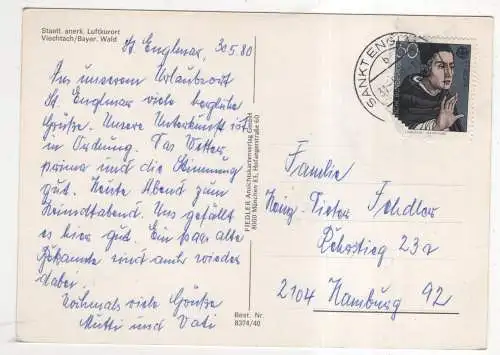 Staatl. anerk. Luftkurort
Viechtach/Bayer. Wald
St. Englmar, 30.5.80
Aus unserem Urlaubsort
St. Englmar viele herzliche
Grüße. Unsere Unterkunft ist
in Ordnung. Das Wetter
prima und die Stimmung
gut. Heute Abend zum
Heimatabend. Uns gefällt
es hier gut. Ein paar alte
Bekannte sind auch wieder
dabei.
Nochmals viele Grüße
Mutti und Vati
FIEDLER Ansichtskartenverlag GmbH
8000 München 83, Hofangerstraße 60
Best. Nr.
8374/40
SANKT ENGLMAR
60
Familie
Heinz-Dieter Fehdler
Rehrstieg 23a
2104 Hamburg 92